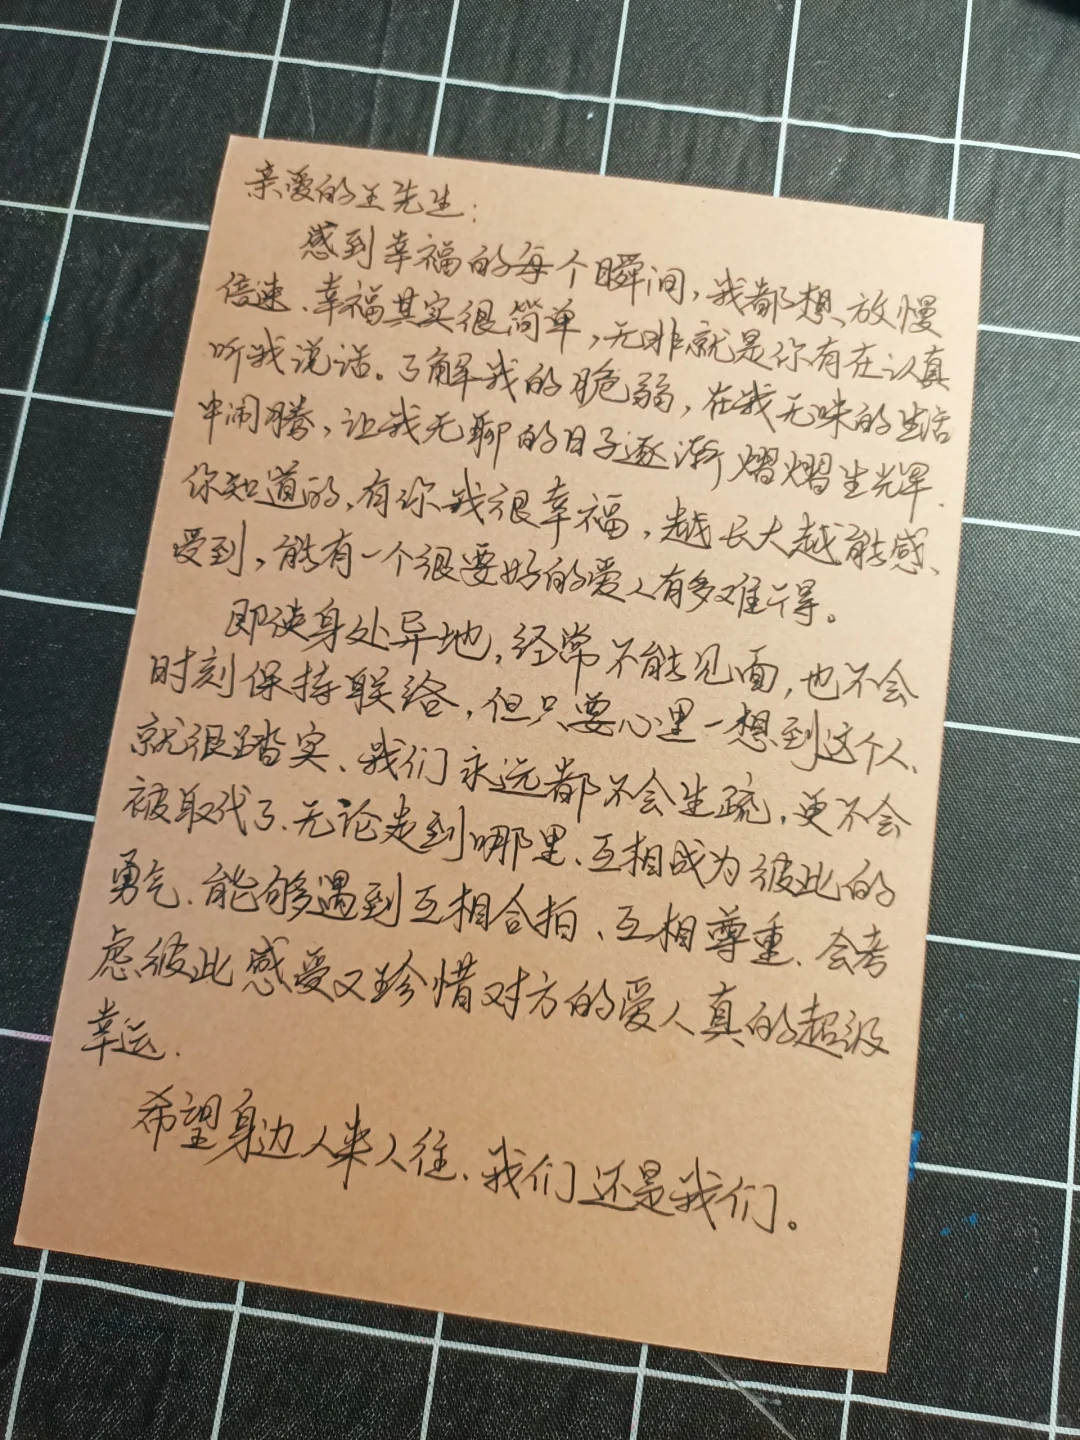 亲爱的王先生：
感到幸福的每个瞬间，我都想放慢
倍速、幸福其实很简单，无非就是你有在认真
听我说话。了解我的脆弱，在我无味的生活
中闹腾，让我无聊的日子逐渐熠熠生光辉.
你知道的，有你我很幸福，越长大越能感
受到，能有一个很要好的爱人有多难得。
即使身处异地，经常不能见面，也不会
时刻保持联络，但只要心里一想到这个人、
就很踏实、我们永远都不会生疏，更不会
被取代了.无论走到哪里、互相成为彼此的
勇气.能够遇到互相合拍、互相尊重、会考
虑彼此感受又珍惜对方的爱人真的超级
幸运.
希望身边人来人往、我们还是我们。